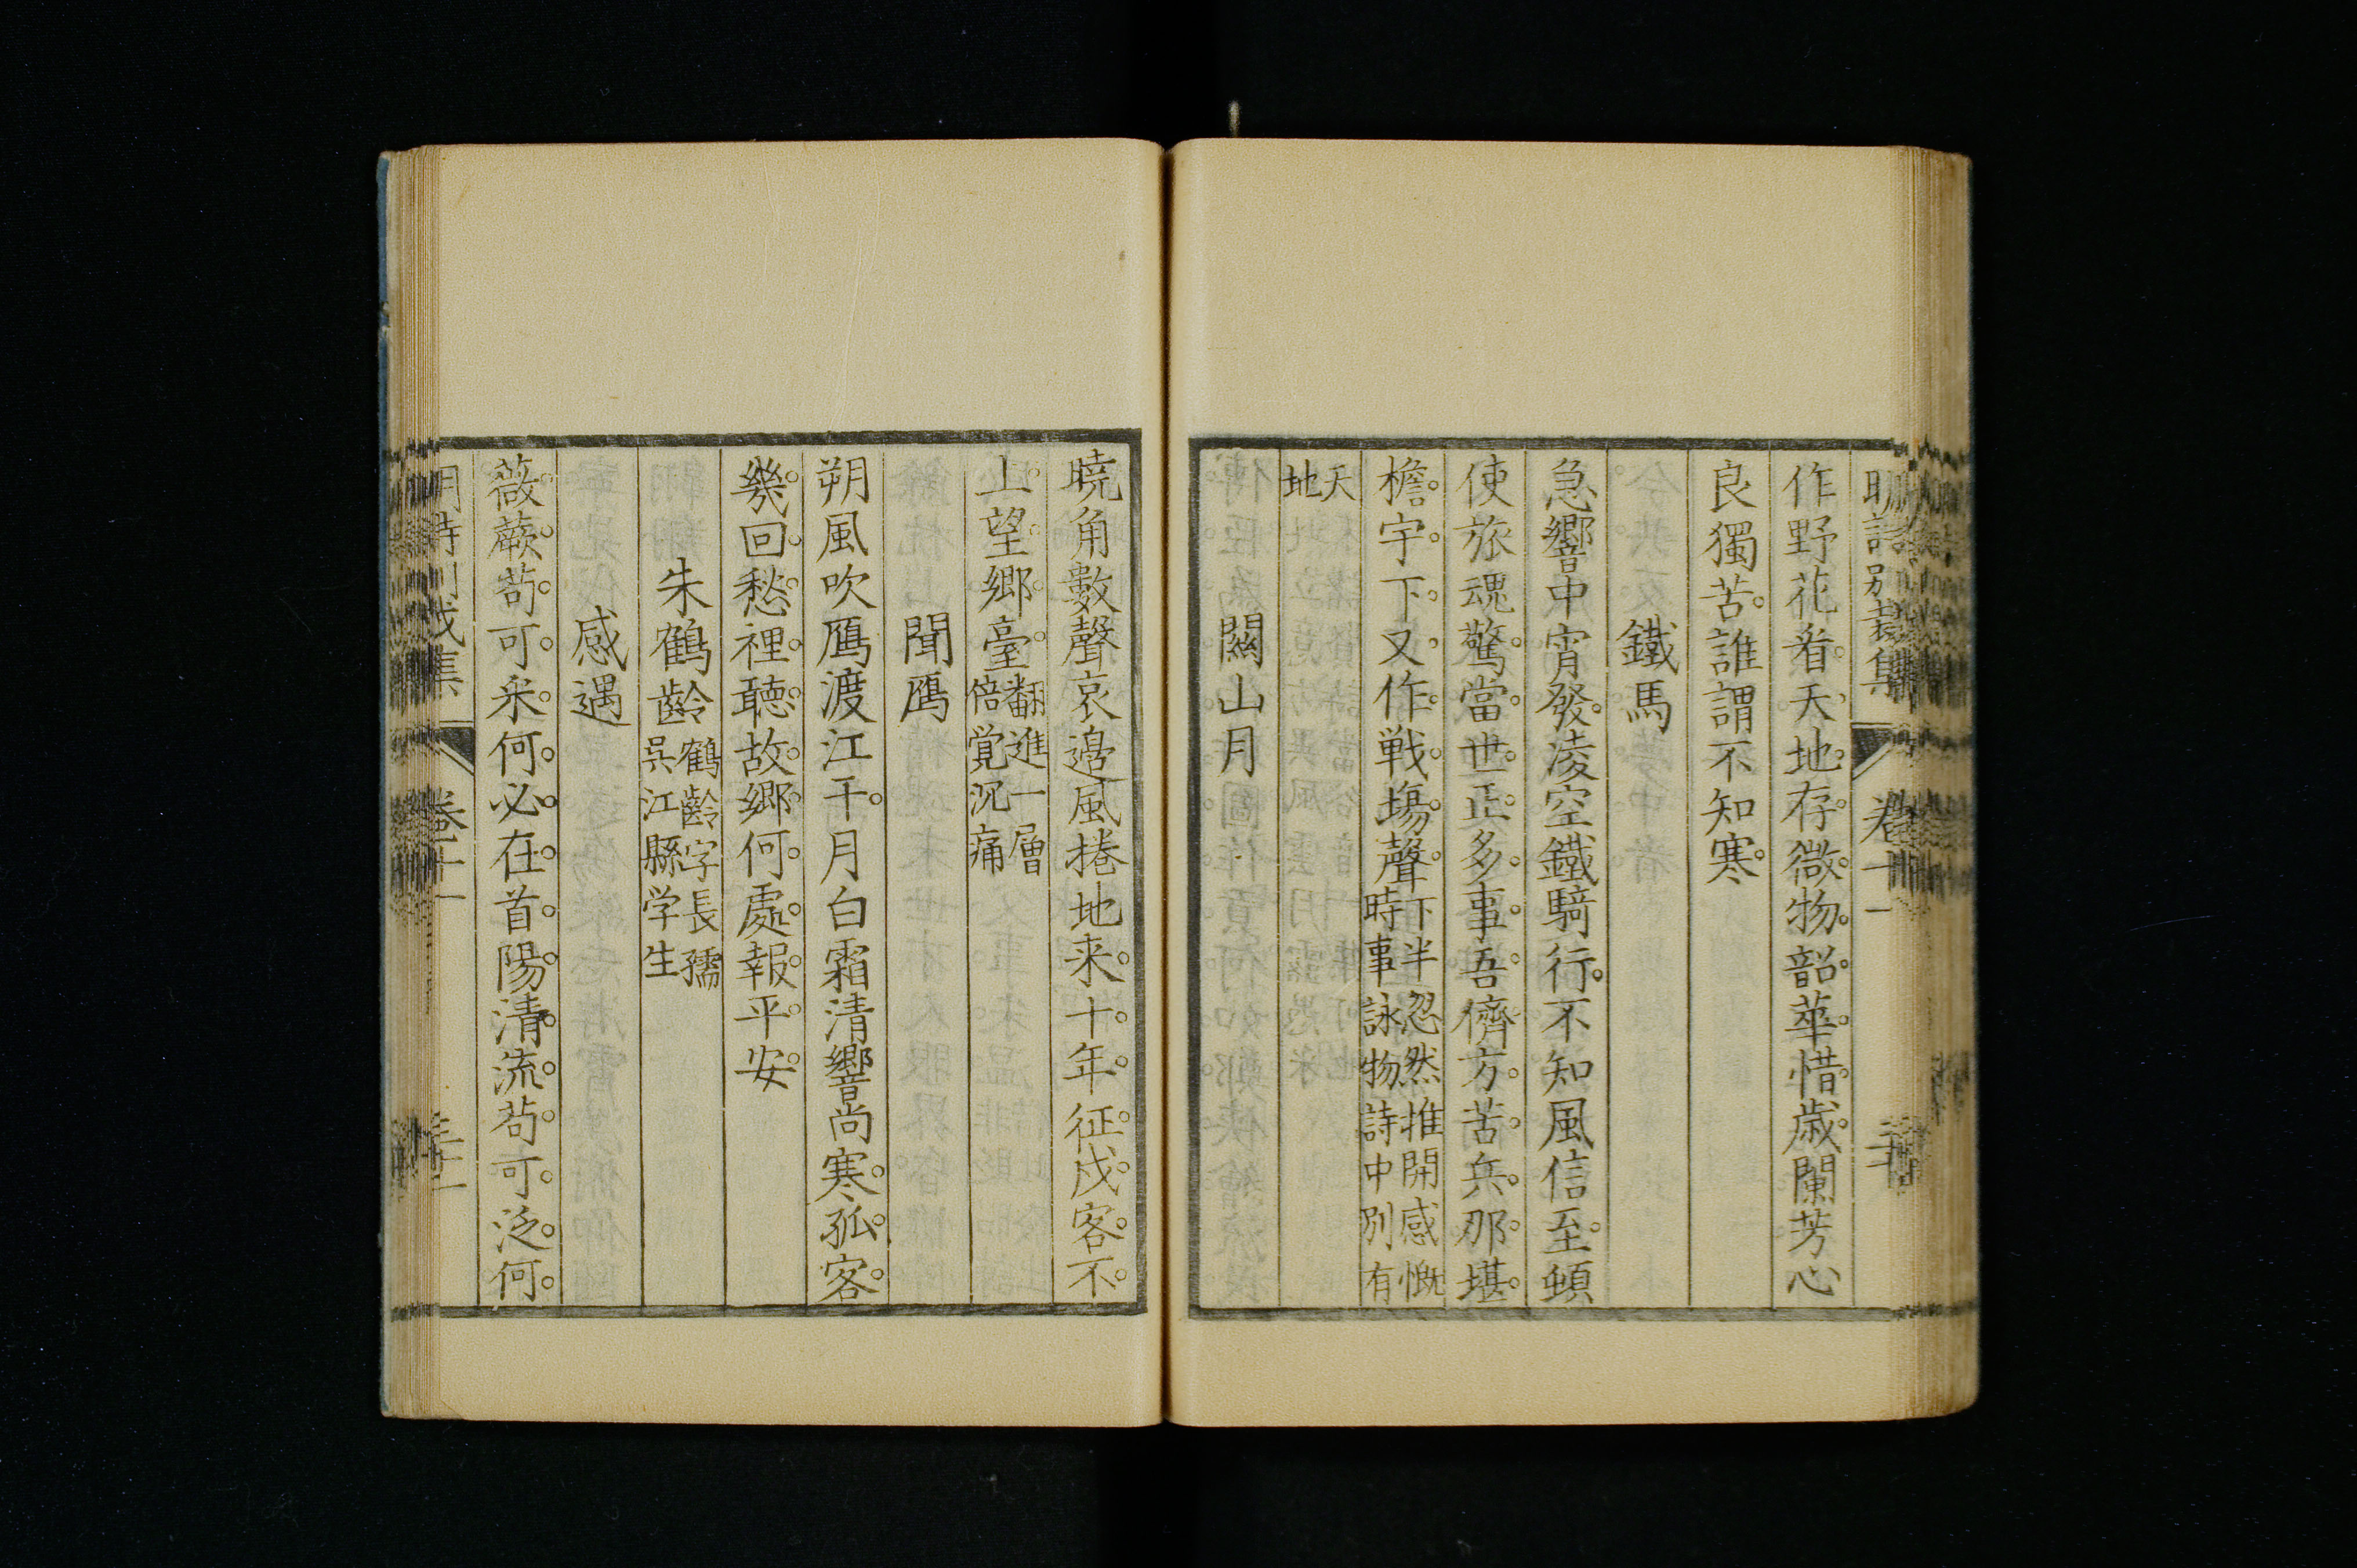 作野花看天地存微物韶華惜歳闌芳心
良獨苦誰謂不知寒
鐵馬
急響中宵發凌空鐵騎行不知風信至頓
使旅魂驚當世正多事吾儕方苦兵那堪
檐宇下又作戦塲聲下半忽然推開感慨
時事詠物詩中別有
天
地
關山月
曉角數聲哀邉風捲地来十年征戍客不
上望鄉臺翻進一層
倍覚沉痛
聞鴈
朔風吹鴈渡江干月白霜清響尚寒孤客
幾回愁裡聴故鄉何處報平安
朱鶴齡鶴齡字長孺
呉江縣学生
感遇
薇蕨苟可采何必在首陽清流苟可泛何